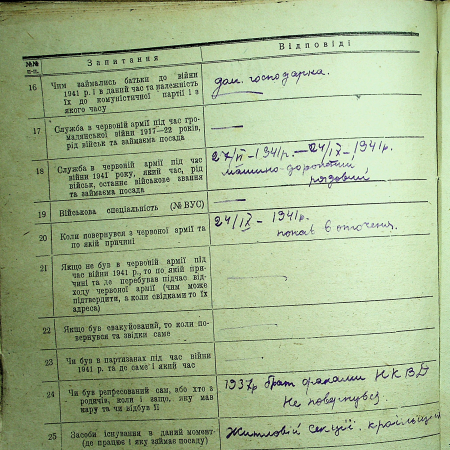 №№ п-п.
Запитання
Відповіді
16
Чим займались батьки до війни
1941 р. і в даний час та належність
їх до комуністичної партії і з
якого часу
дом. господарка.
17
Служба в червоній армії під час гро-
мадянської війни 1917—22 років,
рід військ та займаєма посада
18
Служба в червоній армії під час
війни 1941 року, який час, рід
військ, останнє військове звання
та займаєма посада
27/VI – 1941р. — 24/IX – 1941р.
машино-дорожний
рядовий
19
Військова спеціальність (№ ВУС)
20
Коли повернувся з червоної армії та
по якій причині
24/IX – 1941р.
попав в оточення.
21
Якщо не був в червоній армії під
час війни 1941 р., то по якій при-
чині та де перебував підчас від-
ходу червоної армії (чим може
підтвердити, а коли свідками то їх
адреса)
22
Якщо був евакуйований, то коли по-
вернувся та звідки саме
23
Чи був в партизанах під час війни
1941 р. та де саме і який час
24
Чи був репресований сам, або хто з
родичів, коли і защо, яку мав
кару та чи відбув її
1937р брат органами НКВД
Не повернувся.
25
Засоби існування в даний момент-
(де працює і яку займає посаду)
Житловій секції.